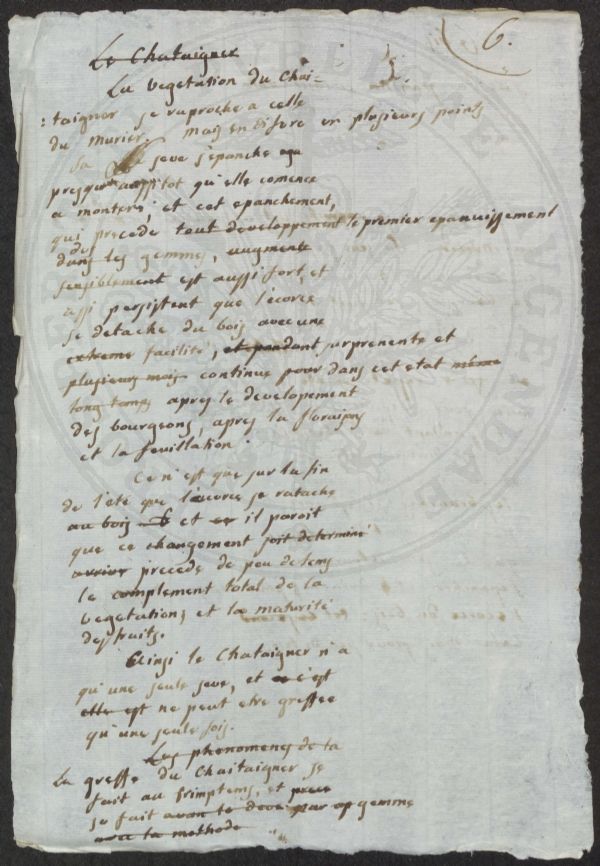 6.
Le Chataigner
La vegetation du Chai-
: taigner se raproche a celle
du Murier, mais en difere en plusieurs points
Sa seve s'epanche
presque aussitot qu'elle comence
a monter; et cet epanchement,
qui precede tout developpement le premier epanuissement
des
dans les gemmes, augmente
sensiblement est aussi fort, et
assi persistent que l'ecorce
se detache du bois avec une
extreme facilité, et pendant surprenente et
plusieurs mois continue pour dans cet etat même
long temps apres le developement
des bourgeons, apres la floraison
et la feuillation.
Ce n'est que sur la fin
de l'eté que l'ecorce se ratache
au bois et il paroit
que ce changement soit determiné
arrive precede de peu de tems
le complement total de la
vegetation; et la maturité
des fruits.
Ainsi le Chataigner n'a
qu'une seule seve, et c'est
elle est ne peut etre greffée
qu'une seule fois.
Les phenomenes de la
La greffe du Chaitaigner se
fait au printemps, et
se fait avant le deve par gemme
avec la methode